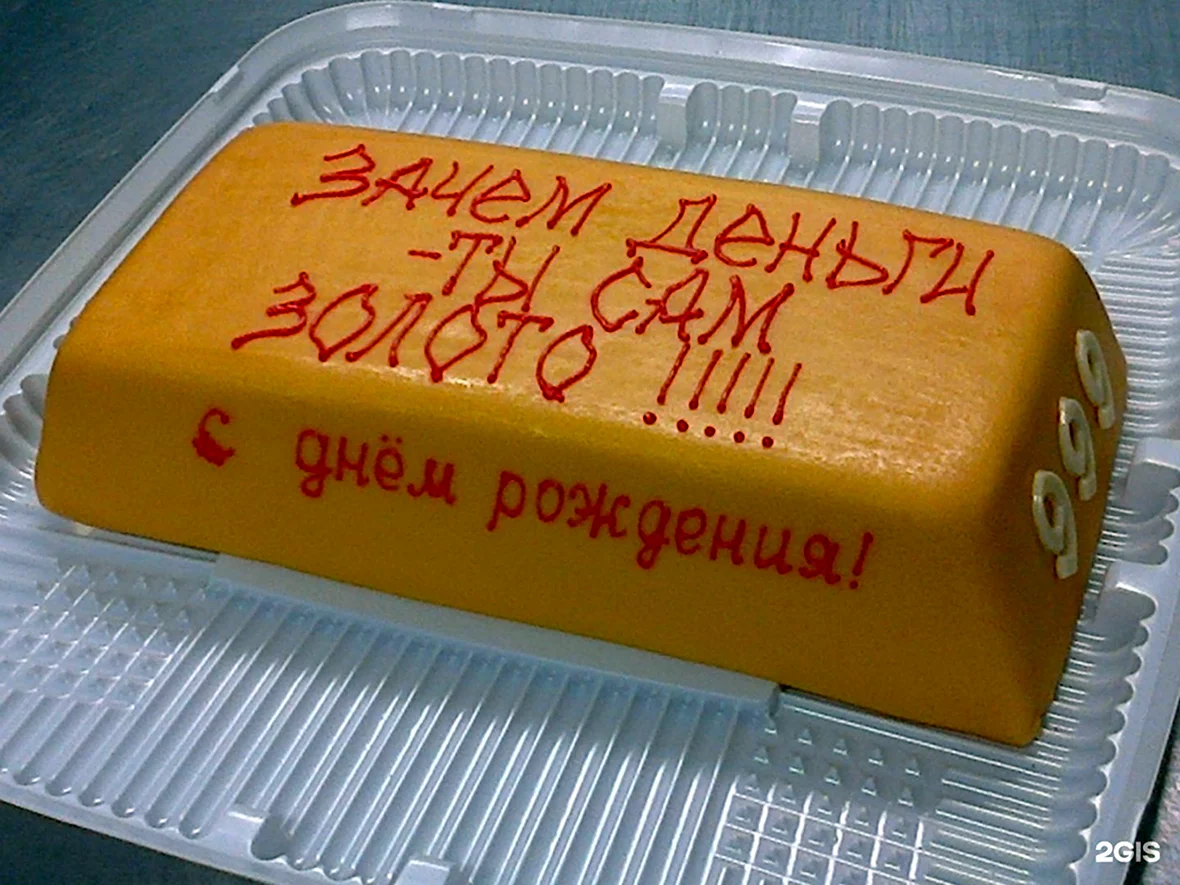 ЗАЧЕМ ДЕНЬГИ
-ТЫ САМ
ЗОЛОТО !!!!!
С днём рождения!
999
2GIS